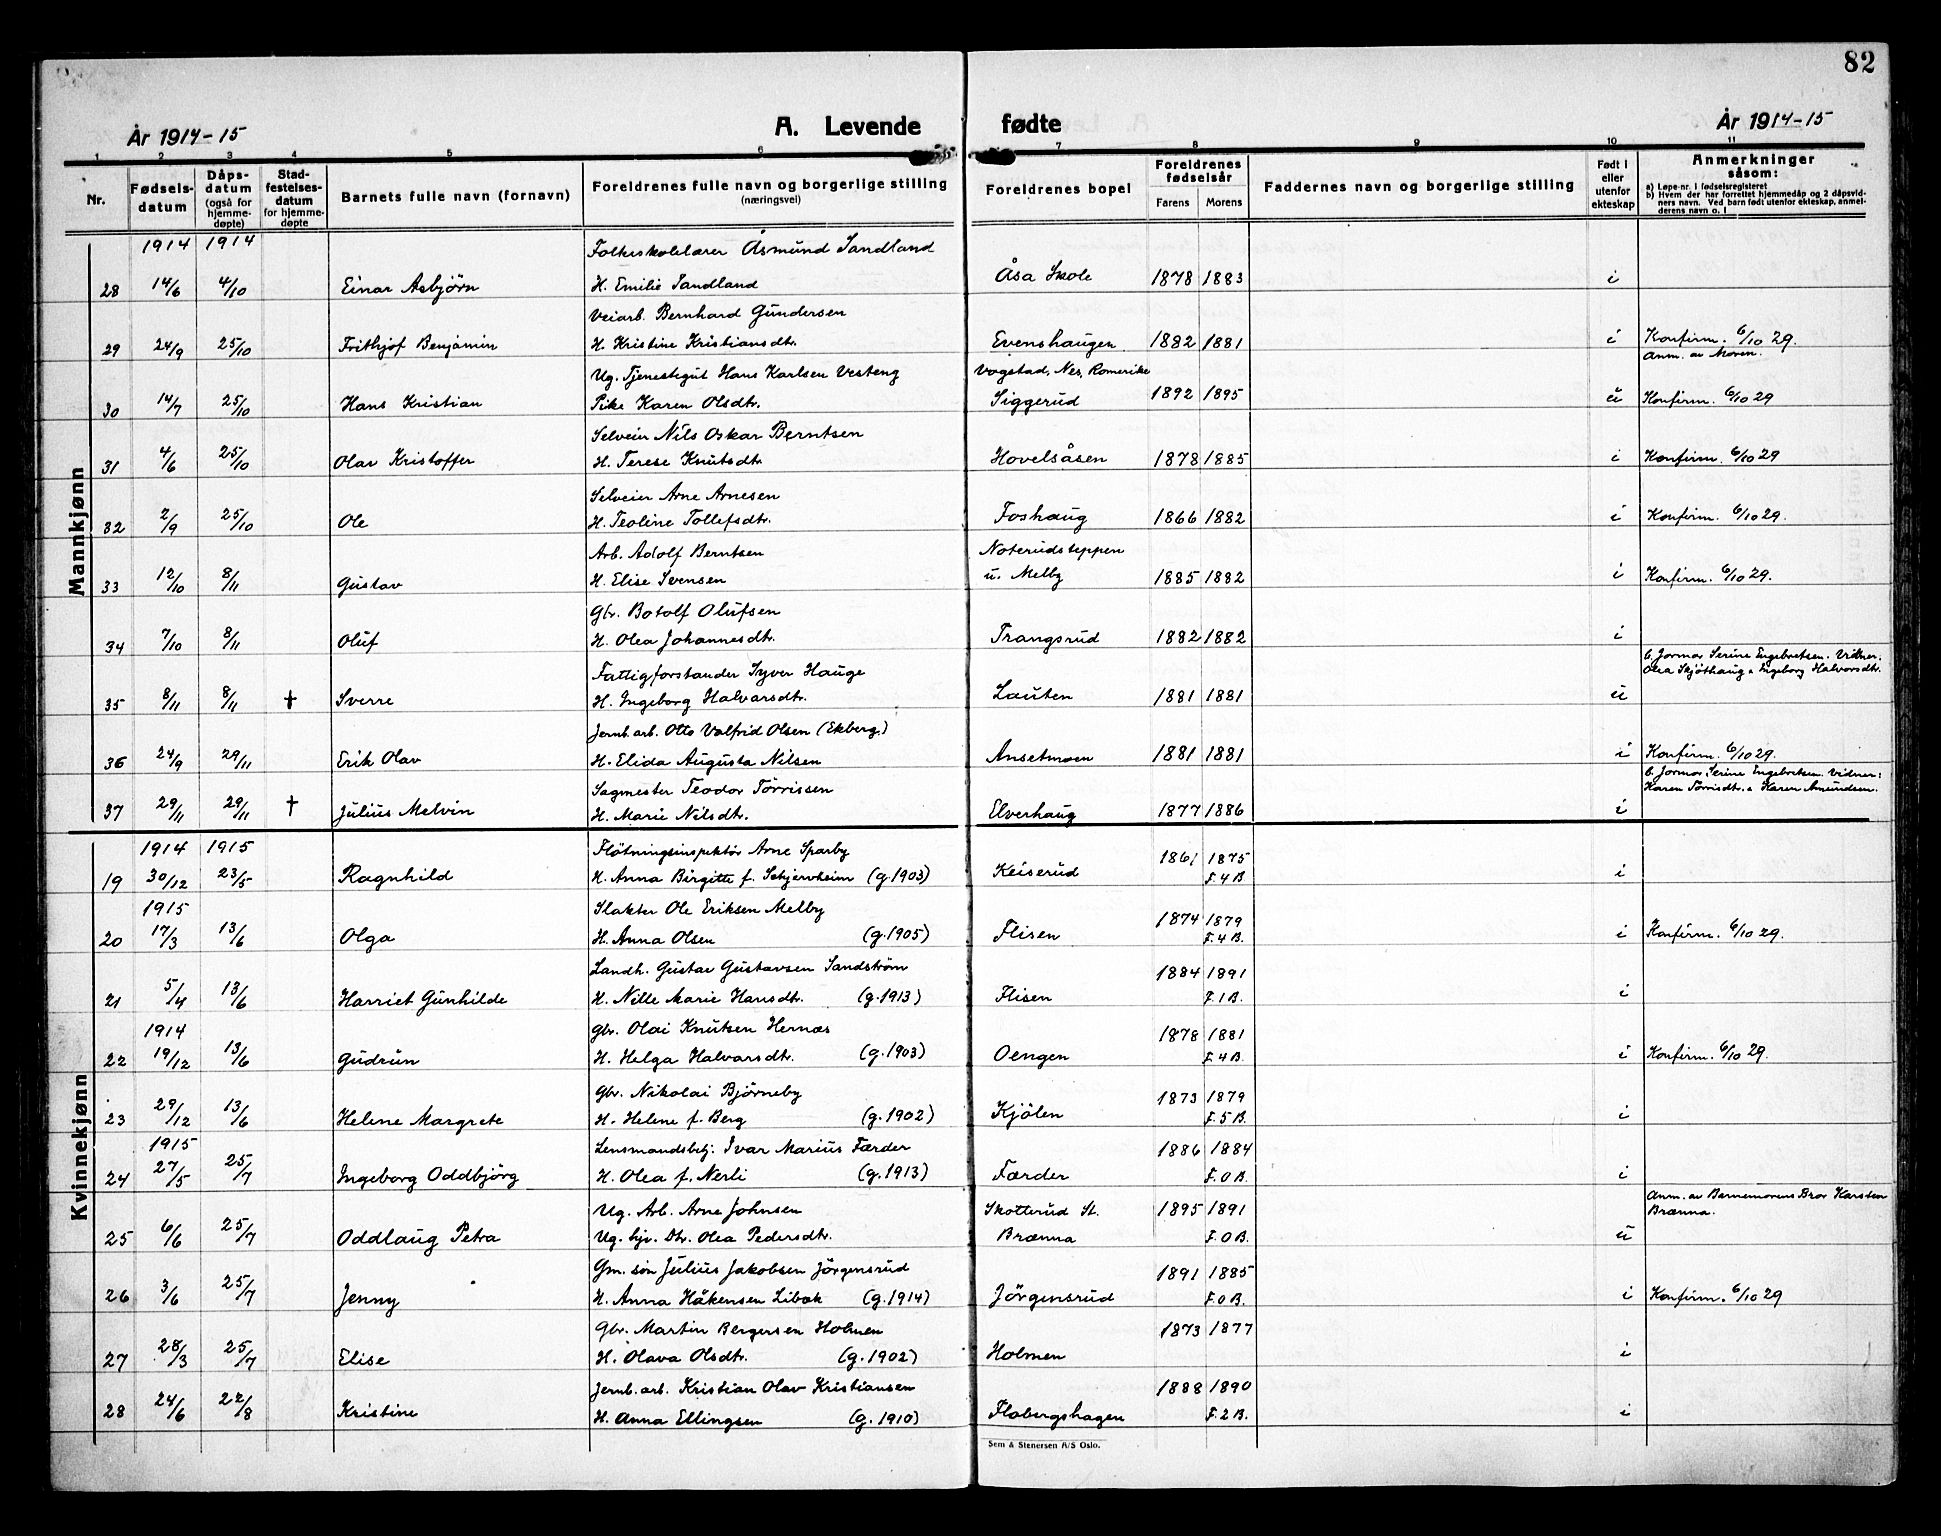 82
År 1914-15
A. Levende fødte
År 1914-15
1 2 3 4 5 6 7 8 9 10 11
Nr.
Fødselsdatum
Dåpsdatum (også for hjemmedøpte)
Stadfestelsesdatum for hjemmedøpte
Barnets fulle navn (fornavn)
Foreldrenes fulle navn og borgerlige stilling (næringsvei)
Foreldrenes bopel
Foreldrenes fødselsår
Farens Morens
Faddernes navn og borgerlige stilling
Født i eller utenfor ekteskap
Anmerkninger såsom:
a) Løpe-nr. i fødselsregisteret
b) Hvem der har forrettet hjemmedåp og 2 dåpsvidners navn. Ved barn født utenfor ekteskap, anmelderens navn o. l
Mannkjønn
1914 1914 Folkeskolelærer Åsmund Sandland
28 14/6 4/10 Einar Asbjørn H. Emilie Sandland Åsa Skole 1878 1883 i
Veiarb. Bernhard Gundersen
29 24/9 25/10 Frithjof Benjamin H. Kristine Kristiansdtr. Evenshaugen 1882 1881 i Konfirm. 6/10 29.
Ug. Tjenestegut Hans Karlsen Vesteng Vogstad, Nes, Romerike Anm. av Moren.
30 14/7 25/10 Hans Kristian Pike Karen Olsdtr. Siggerud 1892 1895 u Konfirm. 6/10 29
Selveier Nils Oskar Berntsen
31 4/6 25/10 Olav Kristoffer H. Terese Knutsdtr. Hovelsåsen 1878 1885 i Konfirm. 6/10 29
Selveier Arne Arnesen
32 2/9 25/10 Ole H. Teoline Tollefsdtr. Foshaug 1866 1882 i Konfirm. 6/10 29.
Arb. Adolf Berntsen Noterudsteppen
33 12/10 8/11 Gustav H. Elise Svensen u. Melby 1885 1882 i Konfirm. 6/10 29.
Gbr. Botolf Olufsen
34 7/10 8/11 Oluf H. Olea Johannesdtr. Trangsrud 1882 1882 i
Fattigforstander Syver Hauge b. Jormor Serine Engebretsen. Vidner:
Olea Skjöthaug & Ingeborg Halvorsdtr.
35 8/11 8/11 † Sverre H. Ingeborg Halvarsdtr. Lauten 1881 1881 u
Jernb. arb. Otto Valfrid Olsen (Ekberg.)
36 24/9 29/11 Erik Olav H. Elida Augusta Nilsen Ansetmoen 1881 1881 i Konfirm. 6/10 29.
Sagmester Teodor Törrissen b. Jormor Serine Engebretsen. Vidner:
Karen Törrisdtr. & Karen Amundsen.
37 29/11 29/11 † Julius Melvin H. Marie Nilsdtr. Elverhaug 1877 1886 i
Kvinnekjønn
1914 1915 Flötningsinspektör Arne Sparby 1861 1875
19 30/12 23/5 Ragnhild H. Anna Birgitte f. Schjervheim (g. 1903) Keiserud F. 4 B. i
1915 Slakter Ole Eriksen Melby 1874 1879
20 17/3 13/6 Olga H. Anna Olsen (g. 1905) Flisen F. 4 B. i Konfirm. 6/10 29.
Landh. Gustav Gustavsen Sandström 1884 1891
21 5/4 13/6 Harriet Gunhilde H. Nille Marie Hansdtr. (g. 1913) Flisen F. 1 B. i
1914 Gbr. Olai Knutsen Hernæs 1878 1881
22 19/12 13/6 Gudrun H. Helga Halvarsdtr. (g. 1903) Oengen F. 4 B. i Konfirm. 6/10 29.
Gbr. Nikolai Björneby 1873 1879
23 29/12 13/6 Helene Margrete H. Helene f. Berg (g. 1902) Kjölen F. 5 B. i
1915 Lensmandsbetj. Ivar Marius Færder 1886 1884
24 27/5 25/7 Ingeborg Oddbjörg H. Olea f. Nerli (g. 1913) Færder F. 0 B. i
Ug. Arb. Arne Johnsen Skotterud St. 1895 1891 Anm. av Barnemorens Bror Karsten
Brænna.
25 6/6 25/7 Oddlaug Petra Ug. hjv. Dtr. Olea Pedersdtr. Brænna F. 0 B. u
Gm. sön Julius Jakobsen Jörgensrud 1891 1885
26 3/6 25/7 Jenny H. Anna Håkensen Libak (g. 1914) Jörgensrud F. 0 B. i Konfirm. 6/10 29
Gbr. Martin Bergersen Holmen 1873 1877
27 28/3 25/7 Elise H. Olava Olsdtr. (g. 1902) Holmen i
Jernb. arb. Kristian Olav Kristiansen 1888 1890
28 24/6 22/8 Kristine H. Anna Ellingsen (g. 1910) Flobergshagen F. 2 B. i
Sem & Stenersen A/S Oslo.